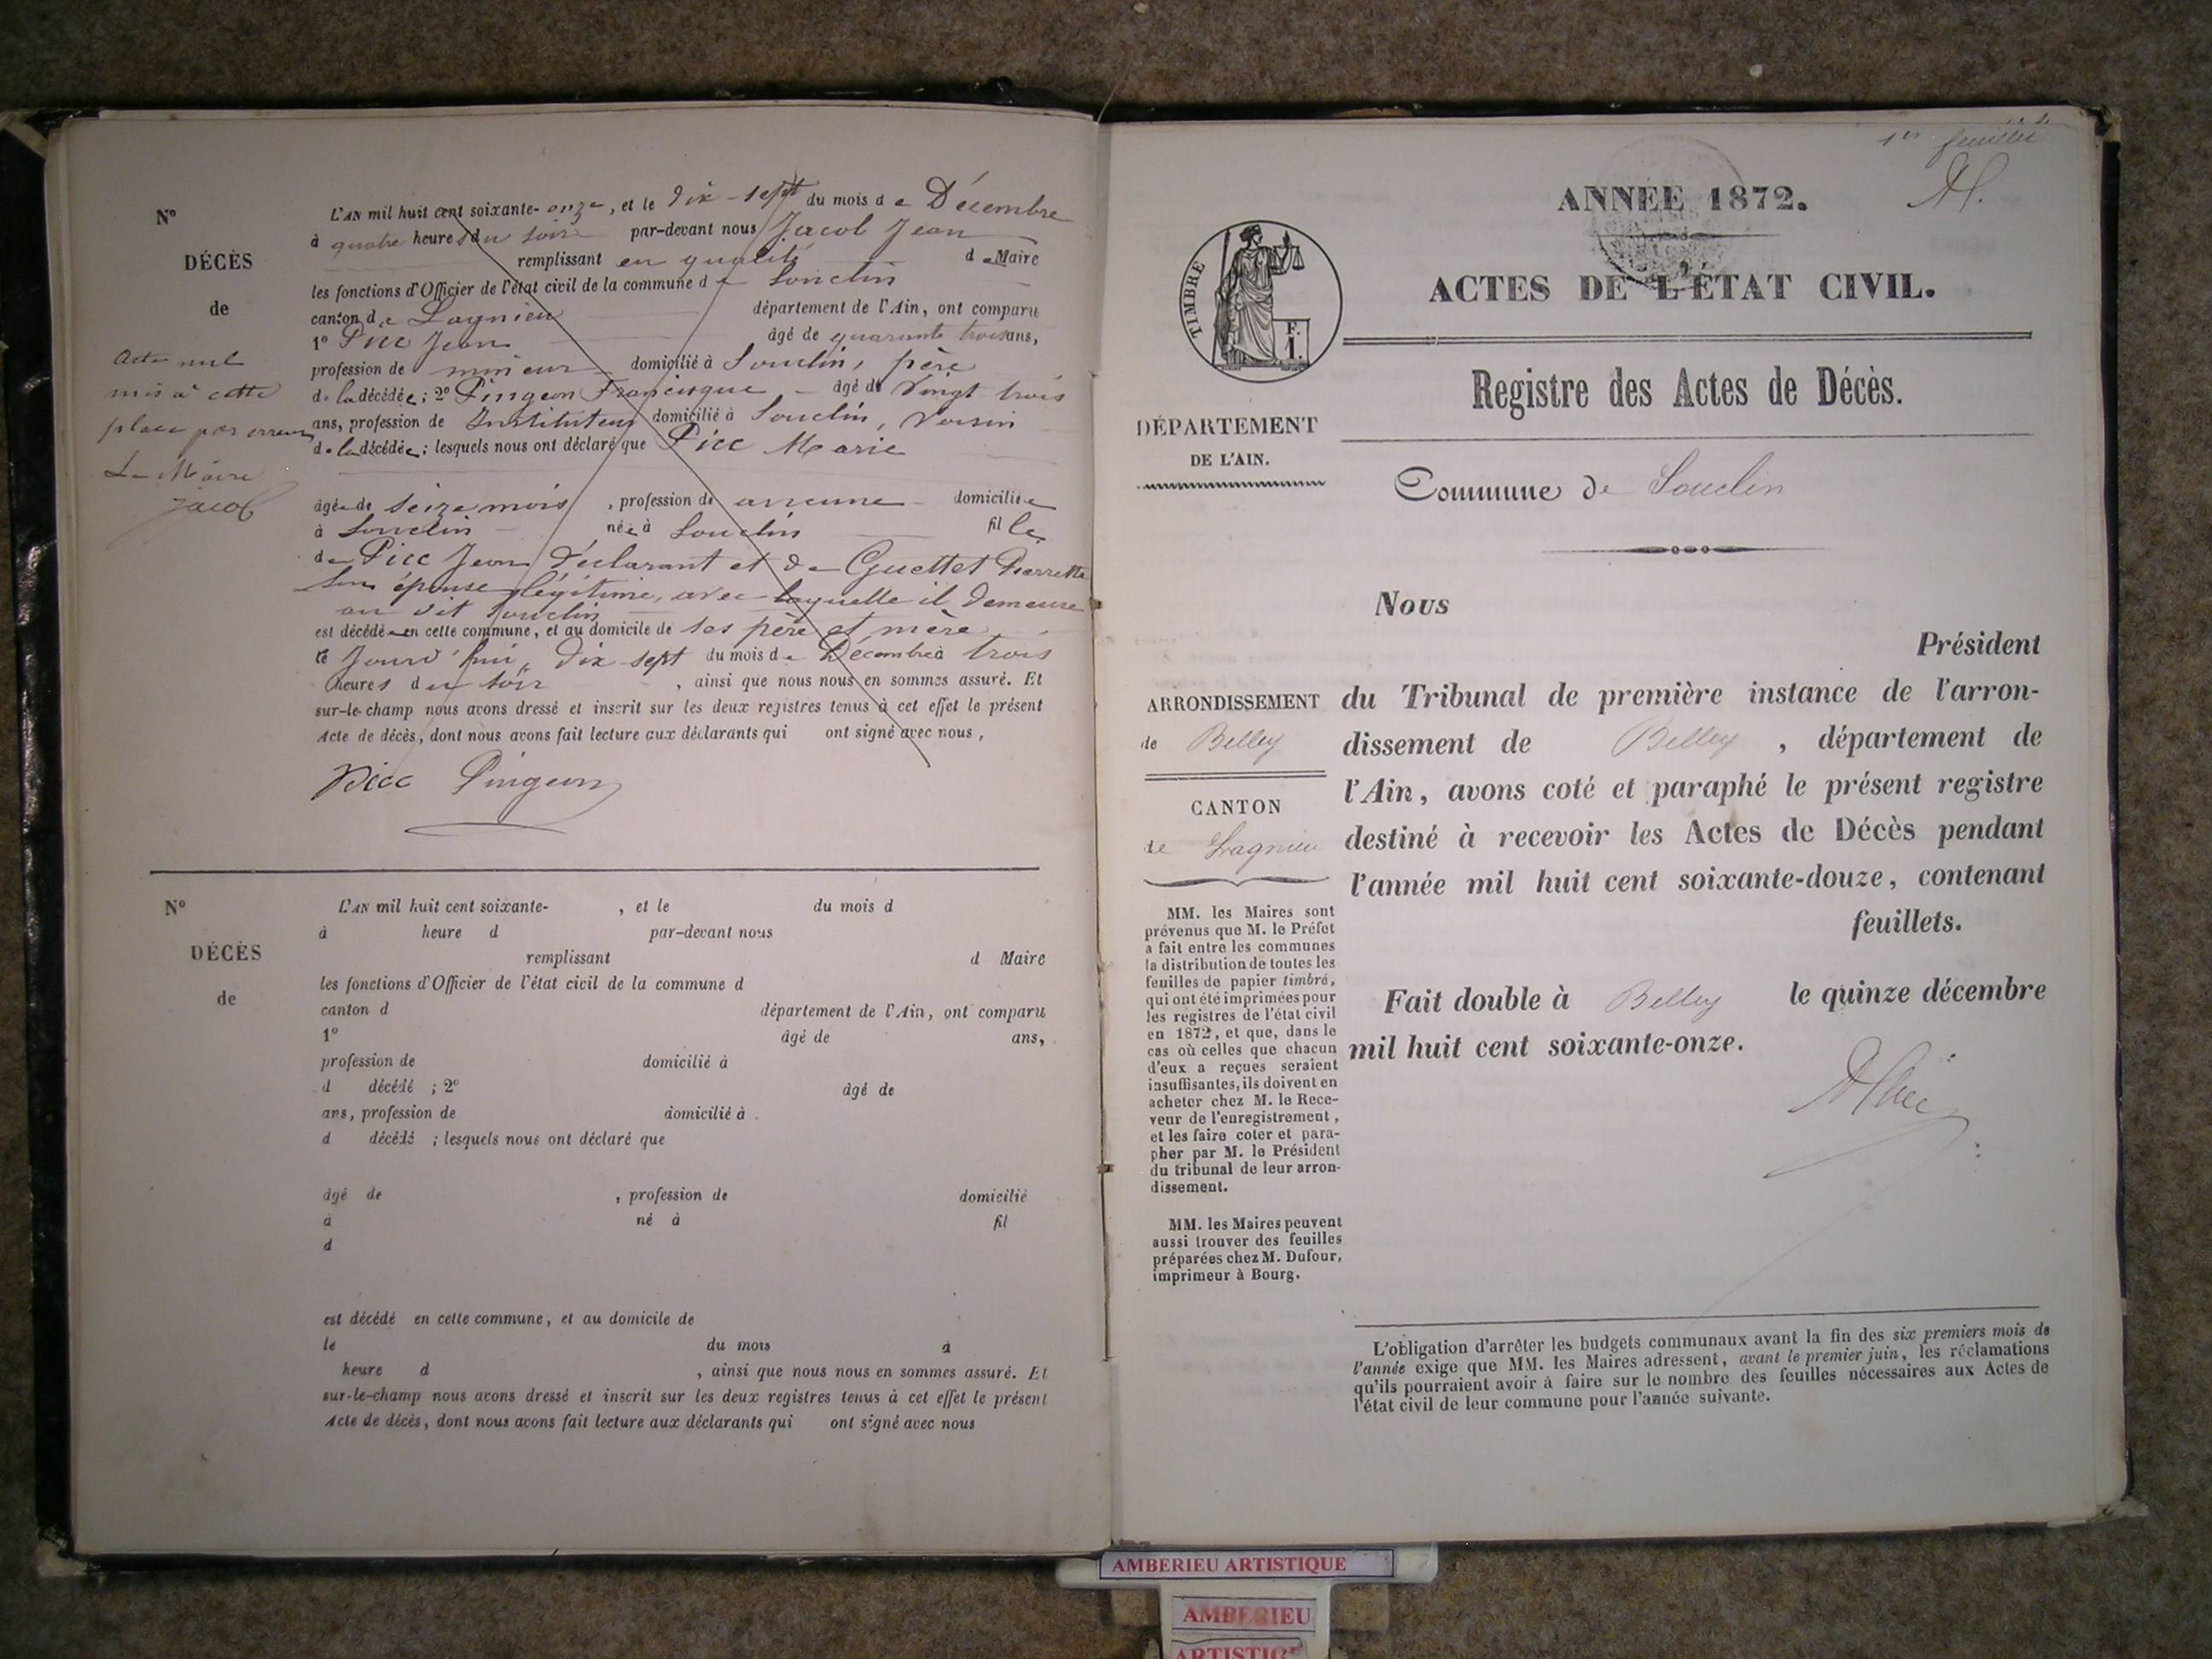 N°
DÉCÈS
de
Acte nul
mis à cette
place par erreur
Le Maire
Jacob
L'AN mil huit cent soixante-onze, et le dix-sept du mois de Décembre
à quatre heures du soir par-devant nous Jacob Jean
remplissant en qualité de Maire
les fonctions d'Officier de l'état civil de la commune de Souclin
canton de Lagnieu département de l'Ain, ont comparu
1° Picc Jean âgé de quarante trois ans,
profession de mineur domicilié à Souclin, père
de la décédée; 2° Pingeon Francisque âgé de vingt trois
ans, profession de Instituteur domicilié à Souclin, voisin
de la décédée; lesquels nous ont déclaré que Picc Marie
âgée de seize mois, profession de aucune domiciliée
à Souclin née à Souclin fille
de Picc Jean déclarant et de Guettet Pierrette
son épouse légitime, avec laquelle il demeure
au dit Souclin
est décédée en cette commune, et au domicile de ses père et mère
le jourd'hui, dix sept du mois de Décembre à trois
heures du soir, ainsi que nous nous en sommes assuré. Et
sur-le-champ nous avons dressé et inscrit sur les deux registres tenus à cet effet le présent
Acte de décès, dont nous avons fait lecture aux déclarants qui ont signé avec nous,
Picc Pingeon
N°
DÉCÈS
de
L'AN mil huit cent soixante- , et le du mois d
à heure d par-devant nous
remplissant d Maire
les fonctions d'Officier de l'état civil de la commune d
canton d département de l'Ain, ont comparu
1° âgé de ans,
profession de domicilié à
d décédé ; 2° âgé de
ans, profession de domicilié à
d décédé ; lesquels nous ont déclaré que
âgé de , profession de domicilié
à né à fil
d
est décédé en cette commune, et au domicile de
le du mois à
heure d , ainsi que nous nous en sommes assuré. Et
sur-le-champ nous avons dressé et inscrit sur les deux registres tenus à cet effet le présent
Acte de décès, dont nous avons fait lecture aux déclarants qui ont signé avec nous
1er feuillet
ANNÉE 1872.
ACTES DE L'ÉTAT CIVIL.
TIMBRE
F.
I.
Registre des Actes de Décès.
DÉPARTEMENT
DE L'AIN.
Commune de Souclin
ARRONDISSEMENT
de Belley
CANTON
de Lagnieu
MM. les Maires sont
prévenus que M. le Préfet
a fait entre les communes
la distribution de toutes les
feuilles de papier timbré,
qui ont été imprimées pour
les registres de l'état civil
en 1872, et que, dans le
cas où celles que chacun
d'eux a reçues seraient
insuffisantes, ils doivent en
acheter chez M. le Rece-
veur de l'enregistrement,
et les faire coter et para-
pher par M. le Président
du tribunal de leur arron-
dissement.
MM. les Maires peuvent
aussi trouver des feuilles
préparées chez M. Dufour,
imprimeur à Bourg.
Nous
Président
du Tribunal de première instance de l'arron-
dissement de Belley, département de
l'Ain, avons coté et paraphé le présent registre
destiné à recevoir les Actes de Décès pendant
l'année mil huit cent soixante-douze, contenant
feuillets.
Fait double à Belley le quinze décembre
mil huit cent soixante-onze.
L'obligation d'arrêter les budgets communaux avant la fin des six premiers mois de
l'année exige que MM. les Maires adressent, avant le premier juin, les réclamations
qu'ils pourraient avoir à faire sur le nombre des feuilles nécessaires aux Actes de
l'état civil de leur commune pour l'année suivante.
AMBERIEU ARTISTIQUE
AMBERIEU
ARTISTIQ